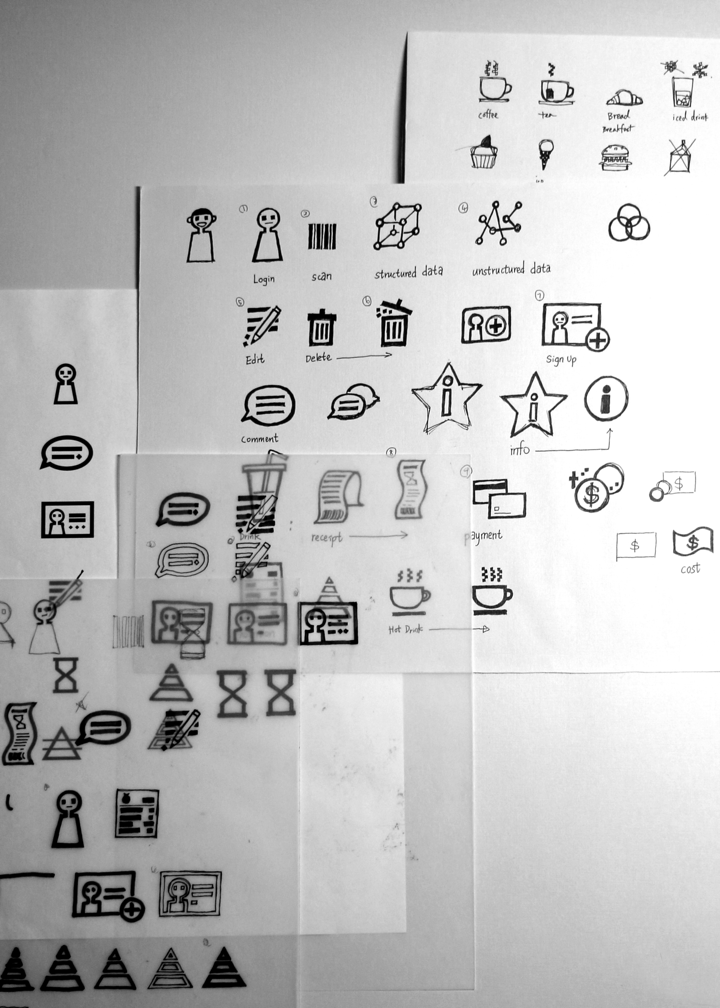 coffee
tea
Bread
Breakfast
iced drink
① ② ③ ④
Login
scan
structured data
unstructured data
⑤ ⑥ ⑦
Edit
Delete
Sign Up
Comment
info
⑧
⑨
Drink
receipt
payment
$
$
$
$
cost
Hot Drink